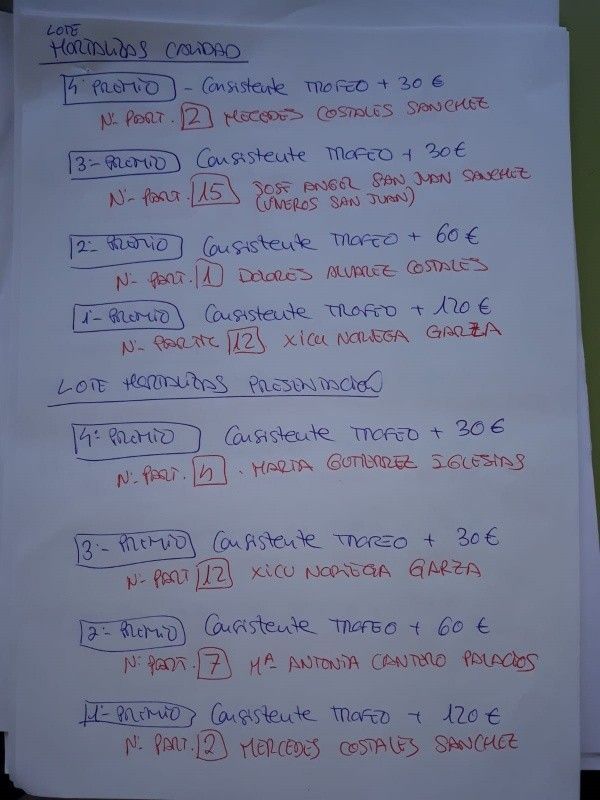 LOTE
HORTALIZAS CALIDAD
4º PREMIO - Consistente TROFEO + 30 €
Nº PART. 2 MECEDES COSTALES SANCHEZ
3º- PREMIO Consistente TROFEO + 30 €
Nº PART. 15 JOSE ANGEL SAN JUAN SANCHEZ
(VIVEROS SAN JUAN)
2º PREMIO Consistente TROFEO + 60 €
Nº- PART. 1 DOLORES ALVAREZ COSTALES
1º- PREMIO Consistente TROFEO + 120 €
Nº- PARTIC 12 XICU NORIEGA GARZA
LOTE HORTALIZAS PRESENTACION
4º PREMIO Consistente TROFEO + 30 €
Nº PART. 4 . MARTA GUTIERREZ IGLESIAS
3º- PREMIO Consistente TROFEO + 30 €
Nº PART 12 XICU NORIEGA GARZA
2º- PREMIO Consistente TROFEO + 60 €
Nº PART. 7 Mª ANTONIA CANTERO PALACIOS
1º- PREMIO Consistente TROFEO + 120 €
Nº- PART. 2 MERCEDES COSTALES SANCHEZ